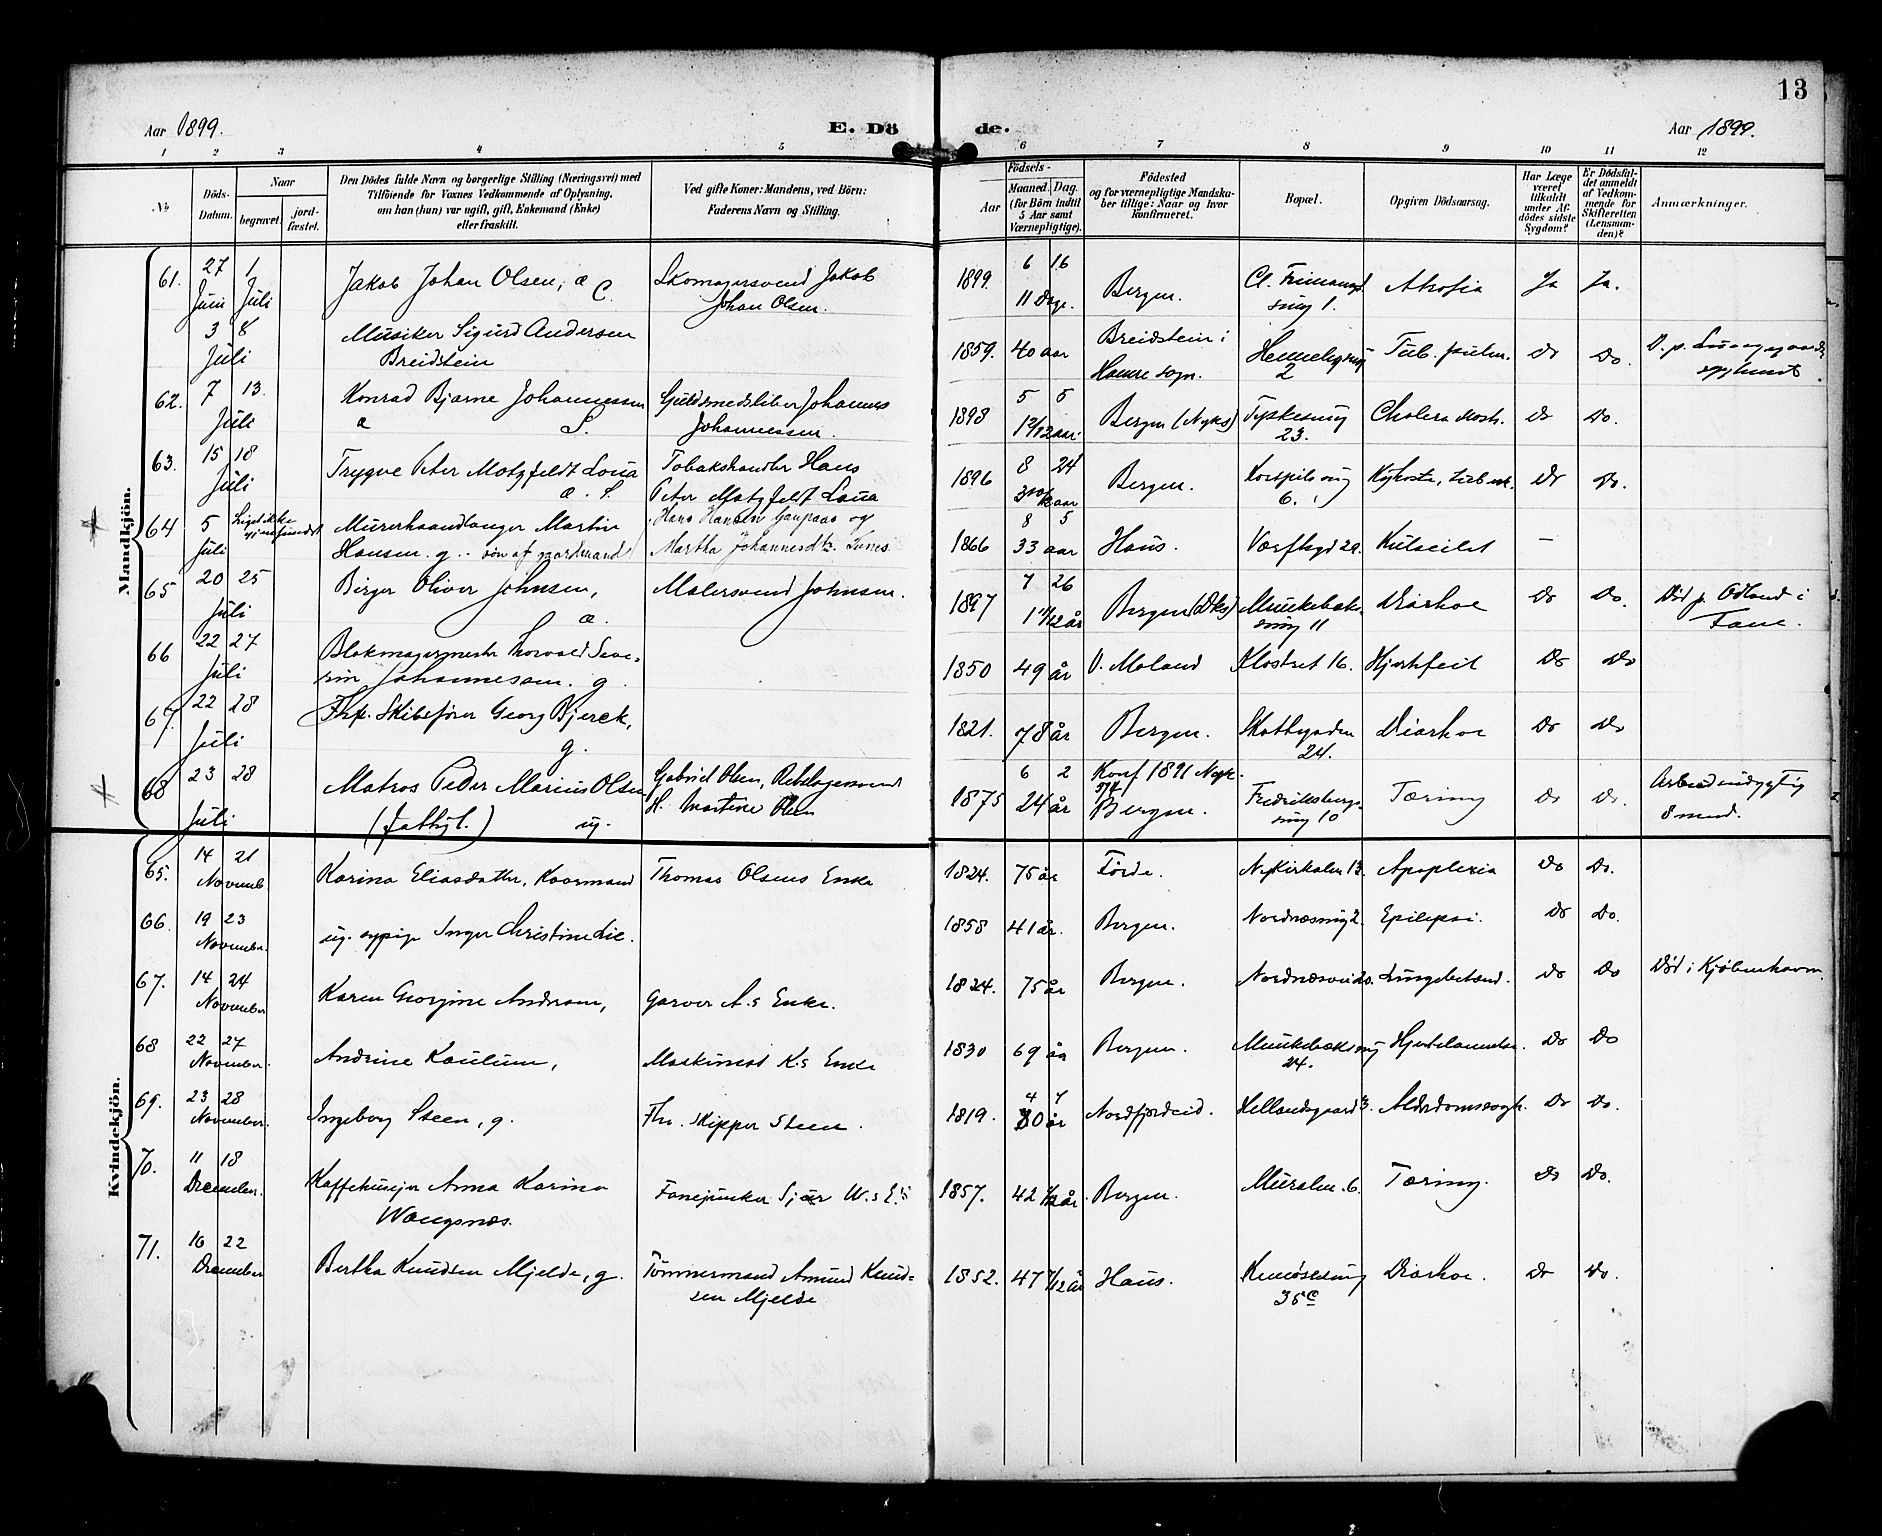 13
Aar 1899. E. Dö de. Aar 1899.
1 2 3 4 5 6 7 8 9 10 11 12
No
Döds-Datum.
Naar
begravet.
jord-fæstet.
Den Dödes fulde Navn og borgerlige Stilling (Næringsvei) med
Tilföiende for Voxnes Vedkommende af Oplysning,
om han (hun) var ugift, gift, Enkemand (Enke)
eller fraskilt.
Ved gifte Koner: Mandens, ved Börn:
Faderens Navn og Stilling.
Födsels-
Aar
Maaned. Dag.
(for Börn indtil
5 Aar samt
Værnepligtige).
Födested
og for værnepligtige Mandska-
ber tillige: Naar og hvor
konfirmeret.
Bopæl.
Opgiven Dödsaarsag.
Har Læge
været
tilkaldt
under Af-
dödes sidste
Sygdom?
Er Dödsfal-
det anmeldt
af Vedkom-
mende for
Skifteretten
(Lensman-
den)?
Anmærkninger.
Mandkjön.
61. 27 Juni 1 Juli Jakob Johan Olsen, æ C. Skomagersvend Jakob Johan Olsen. 1899. 6 16 11 Dage. Bergen. Cl. smug 1. Atrofia Ja Ja.
3 Juli 8 Musiker Sigurd Andersen Breidstein 1859. 40 aar Breidstein i Hamre sogn. 2 Tub. pulm. Do Do. D. p.
62. 7 Juli 13. Konrad Bjarne Johannessen æ S. Johannes Johannessen. 1898 5 5 1 2/12 aar. Bergen (Nyks) Tyskesmug 23. Cholera nostr. Do Do.
63. 15 Juli 18 Trygve Peter Motzfeldt Loua æ. S. Tobakshandler Hans Peter Motzfeldt Loua 1896 8 24 aar Bergen. smug 6. Kighoste, Do Do.
64 5 Juli Liget ikke gjenfundet Murerhaandlanger Martin Hansen g. Hans Hansen Gaupaas og Martha Johannesdtr. 1866 8 5 33 aar Haus. 2a. Kulseilet —
65 20 Juli 25 Birger Oliver Johnsen, æ. Malersvend Johnsen. 1897 7 26 1 11/12 år Bergen (Dks) Munkebæks smug 11 Diarhoe Do Do. Död p. Ödland i Fane.
66 22 Juli 27 Blokmagermester Thorvald Seve-
rin Johannessen. g. 1850 49 år Ö. Moland Klostret 16. Hjertefeil Do Do
67. 22 Juli 28 Fhv. Skibsfører Georg Bjerck, g. 1821. 78 år Bergen. Skottegaden 24. Diarhoe Do Do
68 23 Juli 28 Matros Peder Marius Olsen (fattigl.) ug. Gabriel Olsen, Rebslagersvend H. Martine Olsen 1875 6 2 24 år Konf 1891 Nyk. Bergen. Fredriksbergs smug 10 Tæring Do Do. Arbeidsudygtig 8 mnd.
Kvindekjön.
65. 14 November 21 Karina Eliasdatter, Kaarmand Thomas Olsens Enke 1824. 75 år Förde. Nykirkealm. 13. Apoplexia Do Do.
66. 19 November 23 ug. sypige Inger Christine Lie. 1858 41 år. Bergen. Nordnæsmug 2. Epilepsi. Do Do.
67. 14 November 24 Karen Georgine Andersen, Garver A.s Enke. 1824. 75 år Bergen. Lungebetænd. Do Do Död i Kjöbenhavn
68 22 November 27 Andrine Kaulum, Maskinist K.s Enke 1830 69 år Bergen. Munkebæksmug 24. Do Do
69. 23 November 28 Ingeborg Steen, g. Fhv. Skipper Steen. 1819. 4 7 80 år Nordfjordeid. Hellandsgaard 3. Do Do.
70. 11 December. 18 Anna Karina Wangsnæs. Fanejunker Sjur W.s E. 1857. 42 år. Bergen. Muralm. 6. Tæring. Do Do.
71. 16 December 22 Bertha Knudsen Mjelde, g. Tömmermand Amund Knud-
sen Mjelde 1852. 47 7/12 år Haus. 35c Diarhoe. Do Do.